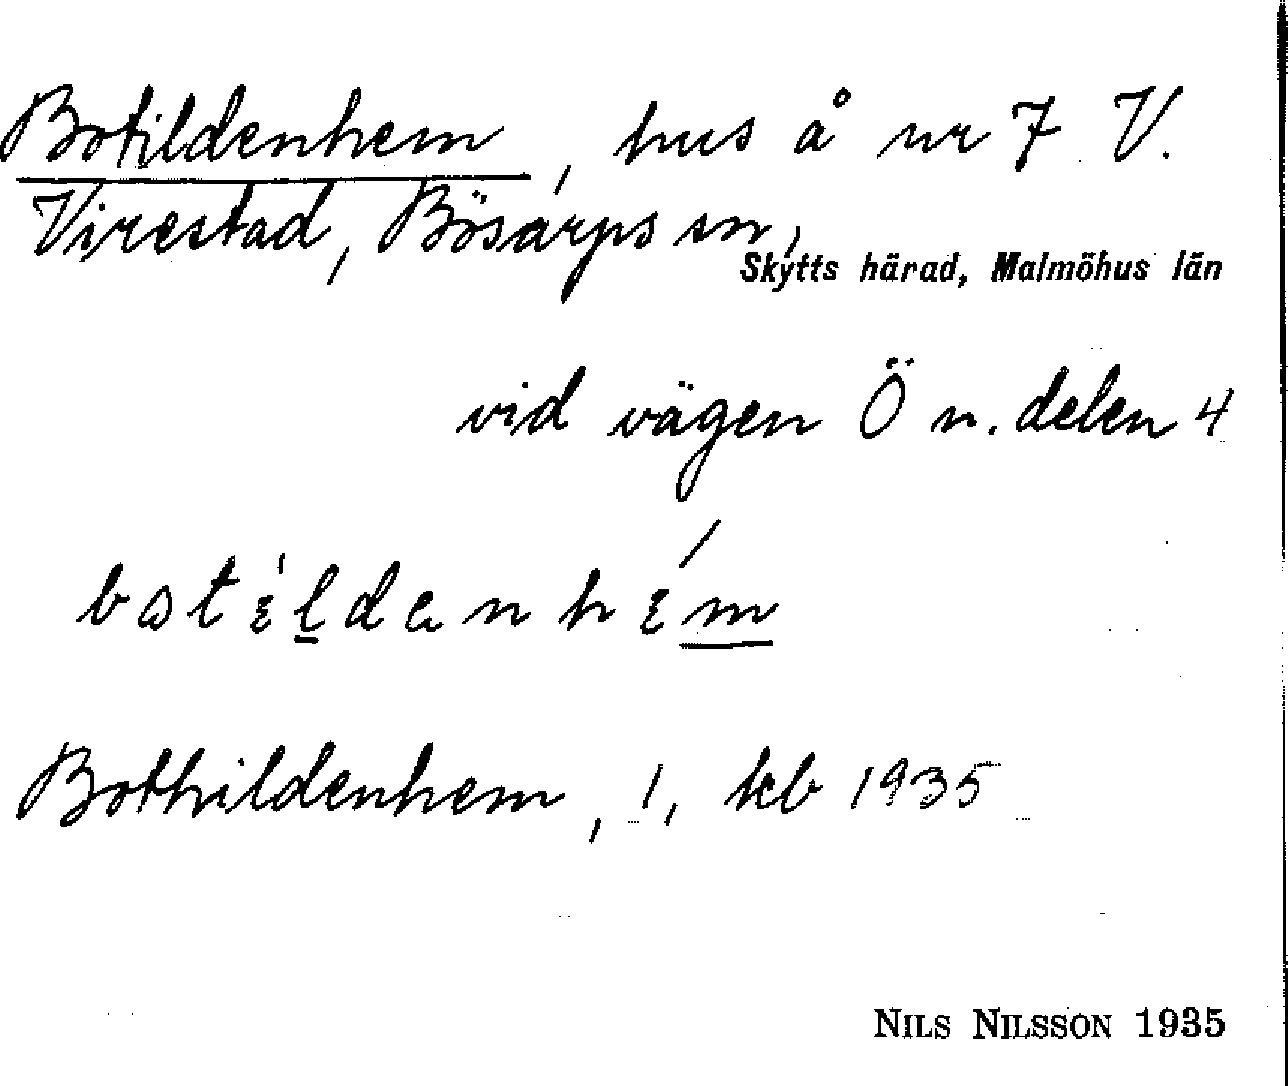 Botildenhem, hus å nr 7 V.
Virestad, Bösarps sn,
Skytts härad, Malmöhus län
vid vägen Ö n. delen 4
Bothildenhem, 1, kb 1935
NILS NILSSON 1935